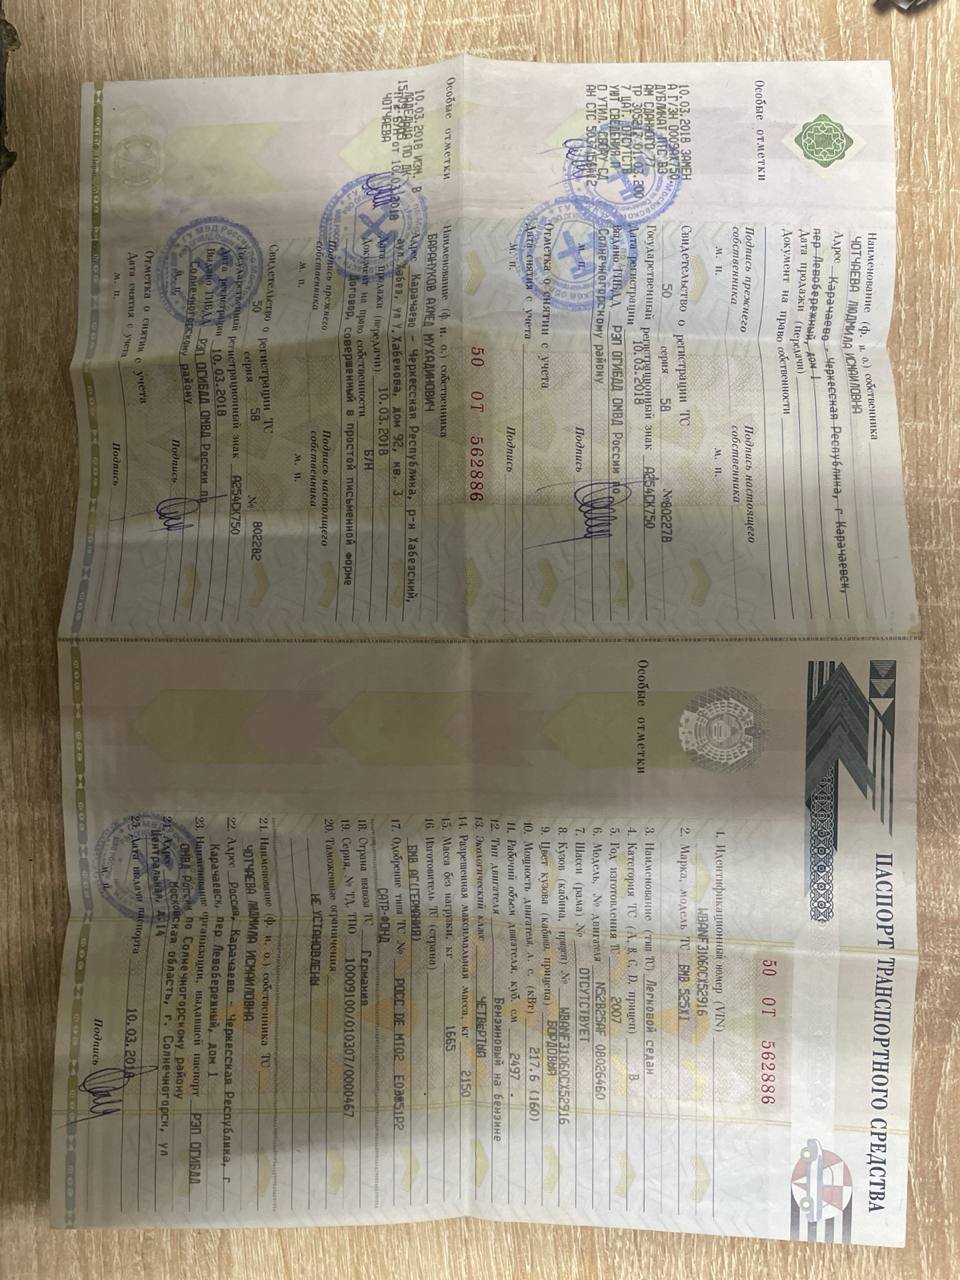 ПАСПОРТ ТРАНСПОРТНОГО СРЕДСТВА
50 ОТ 562886
1. Идентификационный номер (VIN)
WBANF31060CX52916
2. Марка, модель ТС БМВ 525XI
3. Наименование (тип ТС) Легковой седан
4. Категория ТС (A, B, C, D, прицеп) B
5. Год изготовления ТС 2007
6. Модель, № двигателя N52B25AF 08026460
7. Шасси (рама) № ОТСУТСТВУЕТ
8. Кузов (кабина, прицеп) № WBANF31060CX52916
9. Цвет кузова (кабины, прицепа) БОРДОВЫЙ
10. Мощность двигателя, л. с. (кВт) 217.6 (160)
11. Рабочий объем двигателя, куб. см 2497
12. Тип двигателя Бензиновый на бензине
13. Экологический класс ЧЕТВЕРТЫЙ
14. Разрешенная максимальная масса, кг 2150
15. Масса без нагрузки, кг 1665
16. Изготовитель ТС (страна)
БМВ АГ(ГЕРМАНИЯ)
17. Одобрение типа ТС № РОСС DE МТ02
САТР-ФОНД
18. Страна вывоза ТС Германия
19. Серия, № ТД, ТПО 10009100/010307/0000467
20. Таможенные ограничения
НЕ УСТАНОВЛЕНЫ
21. Наименование (ф. и. о.) собственника ТС
ЧОТЧАЕВА ЛЮДМИЛА ИСМАИЛОВНА
22. Адрес Россия, Карачаево - Черкесская Республика, г
Карачаевск, пер Левобережный, дом 1
23. Наименование организации, выдавшей паспорт РЭП ОГИБДД
ОМВД России по Солнечногорскому району
24. Адрес Московская область, г. Солнечногорск, ул
Центральная, д.14
25. Дата выдачи паспорта 10.03.2018
М. П.
Подпись
Особые отметки
Особые отметки
10.03.2018 ЗАМЕН
ДУБЛИКАТ ПТС ВЗ
АМ СДАННОГО 77
Наименование (ф. и. о.) собственника
ЧОТЧАЕВА ЛЮДМИЛА ИСМАИЛОВНА
Адрес Карачаево - Черкесская Республика, г Карачаевск,
пер Левобережный, дом 1
Дата продажи (передачи)
Документ на право собственности
Подпись прежнего собственника
М. П.
Подпись настоящего собственника
М. П.
Свидетельство о регистрации ТС
50 серия 58 №802278
Государственный регистрационный знак А254СК750
Дата регистрации 10.03.2018
Выдано ГИБДД РЭП ОГИБДД ОМВД России по
Солнечногорскому району
М. П.
Подпись
Отметка о снятии с учета
Дата снятия с учета
М. П.
Подпись
50 ОТ 562886
Особые отметки
10.03.2018 ИЗМ. В
ЧОТЧАЕВА
Наименование (ф. и. о.) собственника
БАРАНУКОВ АХМЕД МУХАДИНОВИЧ
Адрес Карачаево - Черкесская Республика, р-н Хабезский,
аул Хабез, ул У.Хабекова, дом 92, кв. 3
Дата продажи (передачи) 10.03.2018
Документ на право собственности Б/Н
договор, совершенный в простой письменной форме
Подпись прежнего собственника
М. П.
Подпись настоящего собственника
М. П.
Свидетельство о регистрации ТС
50 серия 58 № 802282
Государственный регистрационный знак А254СК750
Дата регистрации 10.03.2018
Выдано ГИБДД РЭП ОГИБДД ОМВД России по
Солнечногорскому району
М. П.
Подпись
Отметка о снятии с учета
Дата снятия с учета
М. П.
Подпись